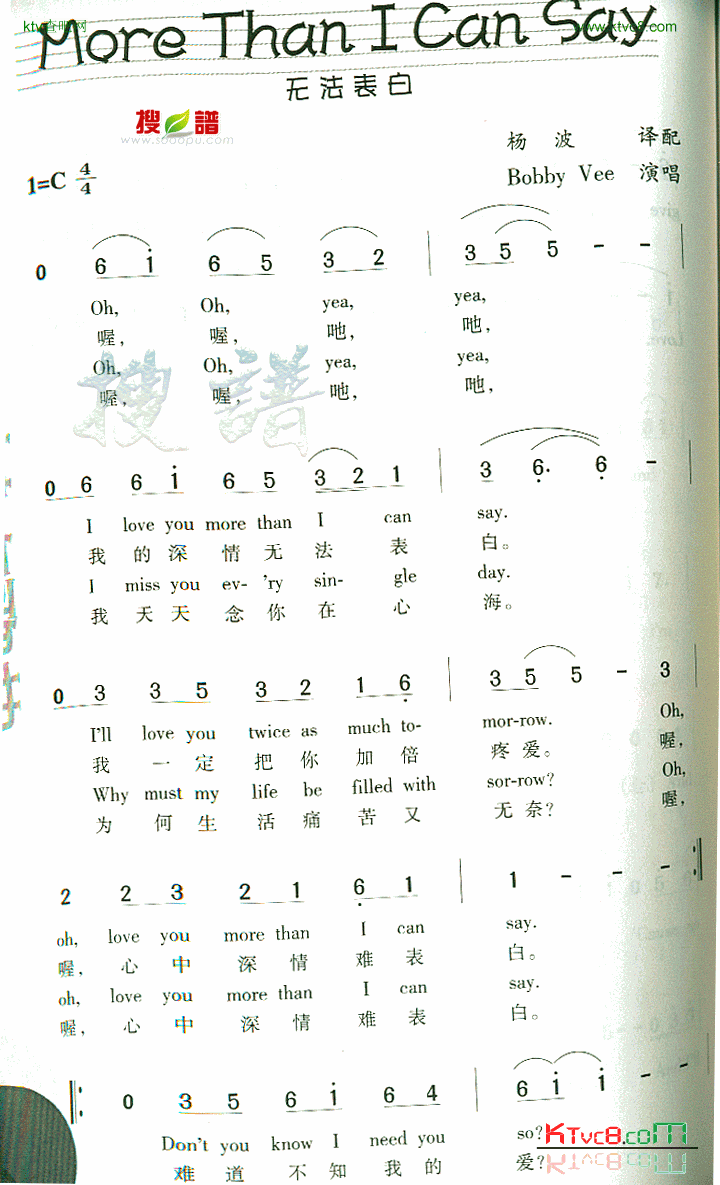 ktvc8.com
www.ktvc8.com
More Than I Can Say
无法表白
搜谱
www.sooopu.com
杨波 译配
1=C 4/4
Bobby Vee 演唱
0 6 i 6 5 3 2 | 3 5 5 - - |
Oh, Oh, yea, yea,
喔, 喔, 吔, 吔,
Oh, Oh, yea, yea,
喔, 喔, 吔, 吔,
搜谱
0 6 6 i 6 5 3 2 1 | 3 6. 6 - |
I love you more than I can say.
我 的 深 情 无 法 表 白。
I miss you ev- 'ry sin- gle day.
我 天 天 念 你 在 心 海。
0 3 3 5 3 2 1 6 | 3 5 5 - 3 |
I'll love you twice as much to- mor-row. Oh,
我 一 定 把 你 加 倍 疼 爱。 喔,
Why must my life be filled with sor-row? Oh,
为 何 生 活 痛 苦 又 无 奈? 喔,
2 2 3 2 1 6 1 | 1 - - - :||
oh, love you more than I can say.
喔, 心 中 深 情 难 表 白。
oh, love you more than I can say.
喔, 心 中 深 情 难 表 白。
||: 0 3 5 6 i 6 4 | 6 i i - - |
Don't you know I need you so?
难 道 不 知 我 的 爱?
KTvc8.com